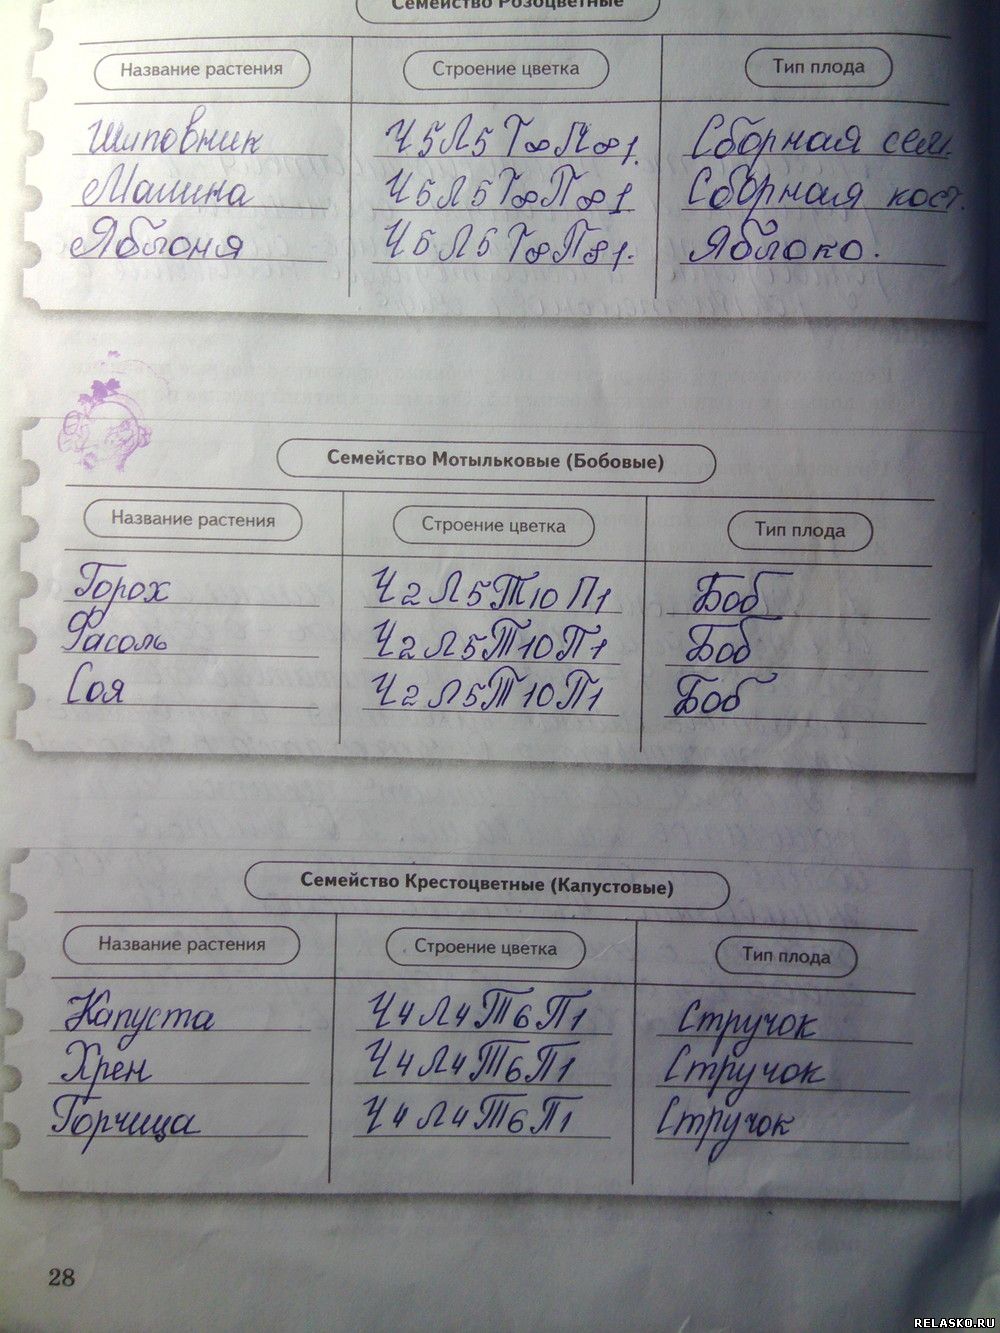 Семейство Розоцветные
Название растения Строение цветка Тип плода
Шиповник Ч5Л5Т∞П∞1. Сборная сем.
Малина Ч5Л5Т∞П∞1 Сборная кост.
Яблоня Ч5Л5Т∞П81. Яблоко.
Семейство Мотыльковые (Бобовые)
Название растения Строение цветка Тип плода
Горох Ч2Л5Т10П1 Боб
Фасоль Ч2Л5Т10П1 Боб
Соя Ч2Л5Т10П1 Боб
Семейство Крестоцветные (Капустовые)
Название растения Строение цветка Тип плода
Капуста Ч4Л4Т6П1 Стручок
Хрен Ч4Л4Т6П1 Стручок
Горчица Ч4Л4Т6П1 Стручок
28
RELASKO.RU